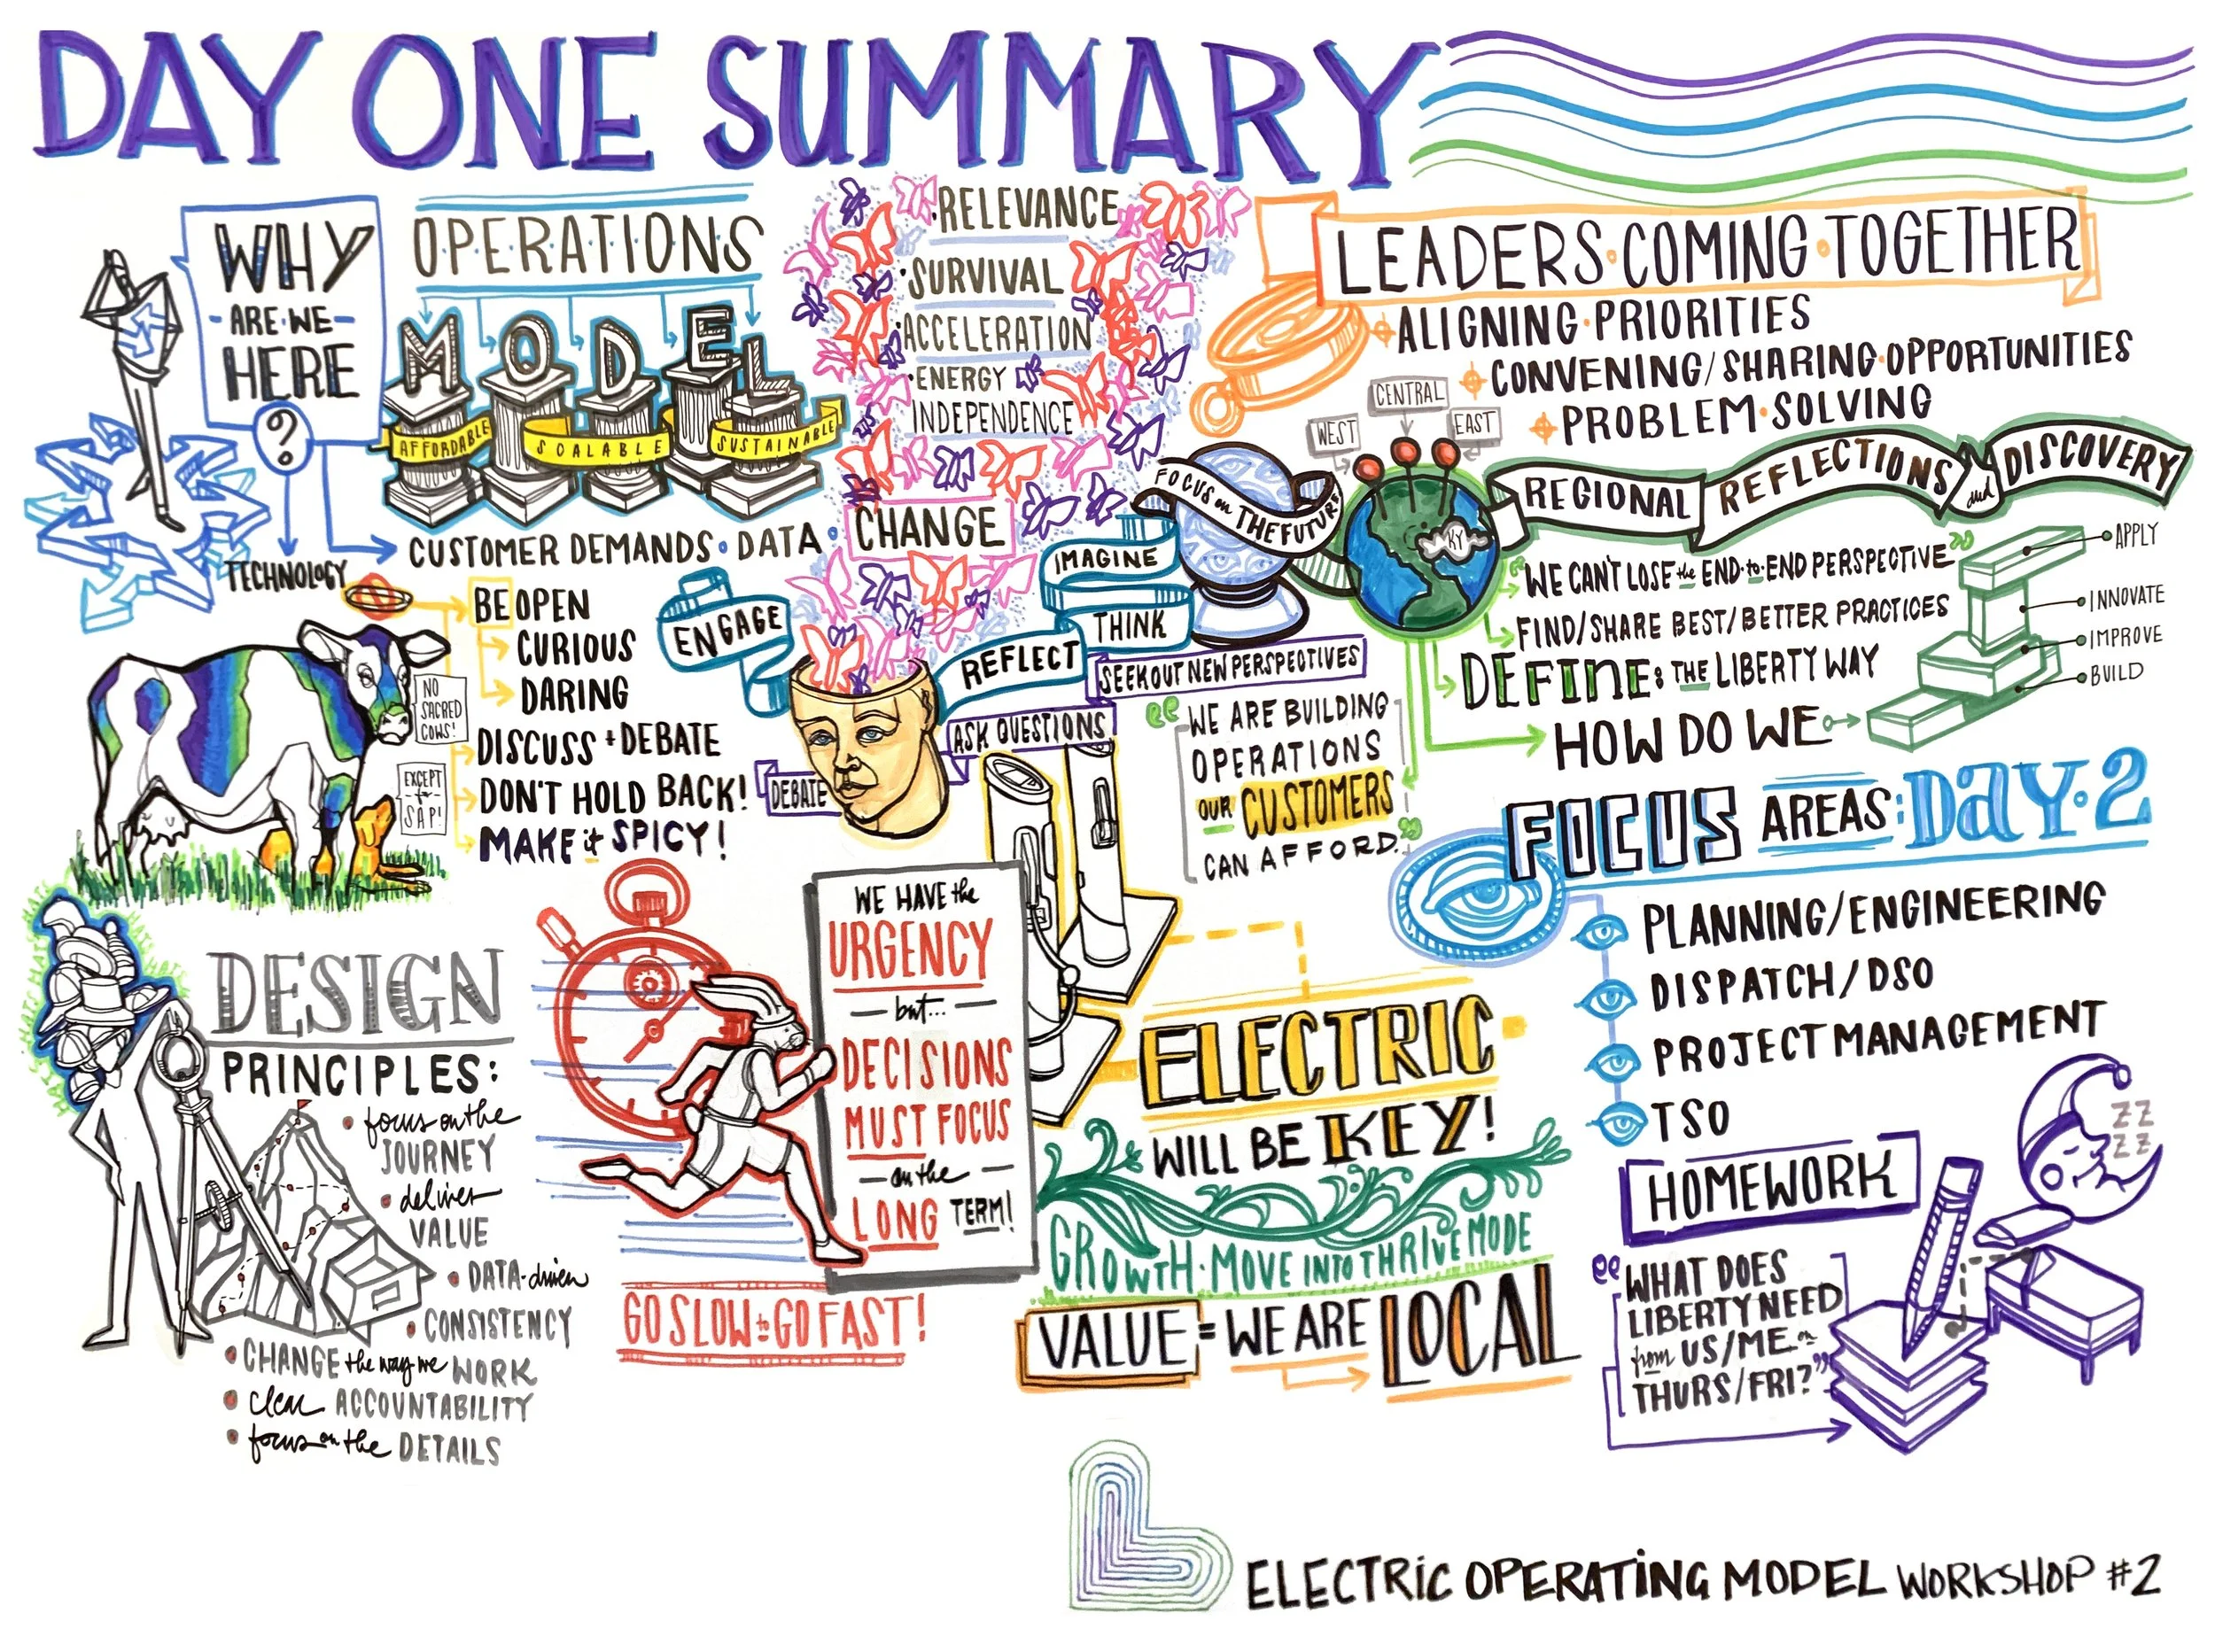 DAY ONE SUMMARY
WHY
- ARE WE -
HERE
?
TECHNOLOGY
OPERATIONS
MODEL
AFFORDABLE
SCALABLE
SUSTAINABLE
CUSTOMER DEMANDS • DATA •
CHANGE
• RELEVANCE
• SURVIVAL
• ACCELERATION
• ENERGY
INDEPENDENCE
LEADERS • COMING • TOGETHER
ALIGNING • PRIORITIES
CONVENING/SHARING • OPPORTUNITIES
PROBLEM • SOLVING
WEST
CENTRAL
EAST
KY
FOCUS on THE FUTURE
REGIONAL REFLECTIONS and DISCOVERY
"WE CAN'T LOSE the END-to-END PERSPECTIVE"
FIND/SHARE BEST/BETTER PRACTICES
DEFINE: THE LIBERTY WAY
HOW DO WE
APPLY
INNOVATE
IMPROVE
BUILD
BE OPEN
CURIOUS
DARING
DISCUSS + DEBATE
DON'T HOLD BACK!
MAKE it SPICY!
NO
SACRED
COWS!
EXCEPT
for
SAP!
ENGAGE
IMAGINE
THINK
REFLECT
SEEK OUT NEW PERSPECTIVES
ASK QUESTIONS
DEBATE
"WE ARE BUILDING
OPERATIONS
OUR CUSTOMERS
CAN AFFORD."
FOCUS AREAS: DAY • 2
PLANNING/ENGINEERING
DISPATCH/DSO
PROJECT MANAGEMENT
TSO
HATS HATS HATS
DESIGN
PRINCIPLES:
• focus on the
JOURNEY
• deliver
VALUE
• DATA-driven
• CONSISTENCY
• CHANGE the way we WORK
• clear ACCOUNTABILITY
• focus on the DETAILS
WE HAVE the
URGENCY
— but... —
DECISIONS
MUST FOCUS
— on the —
LONG TERM!
GO SLOW to GO FAST!
ELECTRIC
WILL BE KEY!
GROWTH • MOVE INTO THRIVE MODE
VALUE = WE ARE LOCAL
HOMEWORK
ZZ
ZZ
"WHAT DOES
LIBERTY NEED
from US/ME on
THURS/FRI?"
ELECTRIC OPERATING MODEL WORKSHOP #2